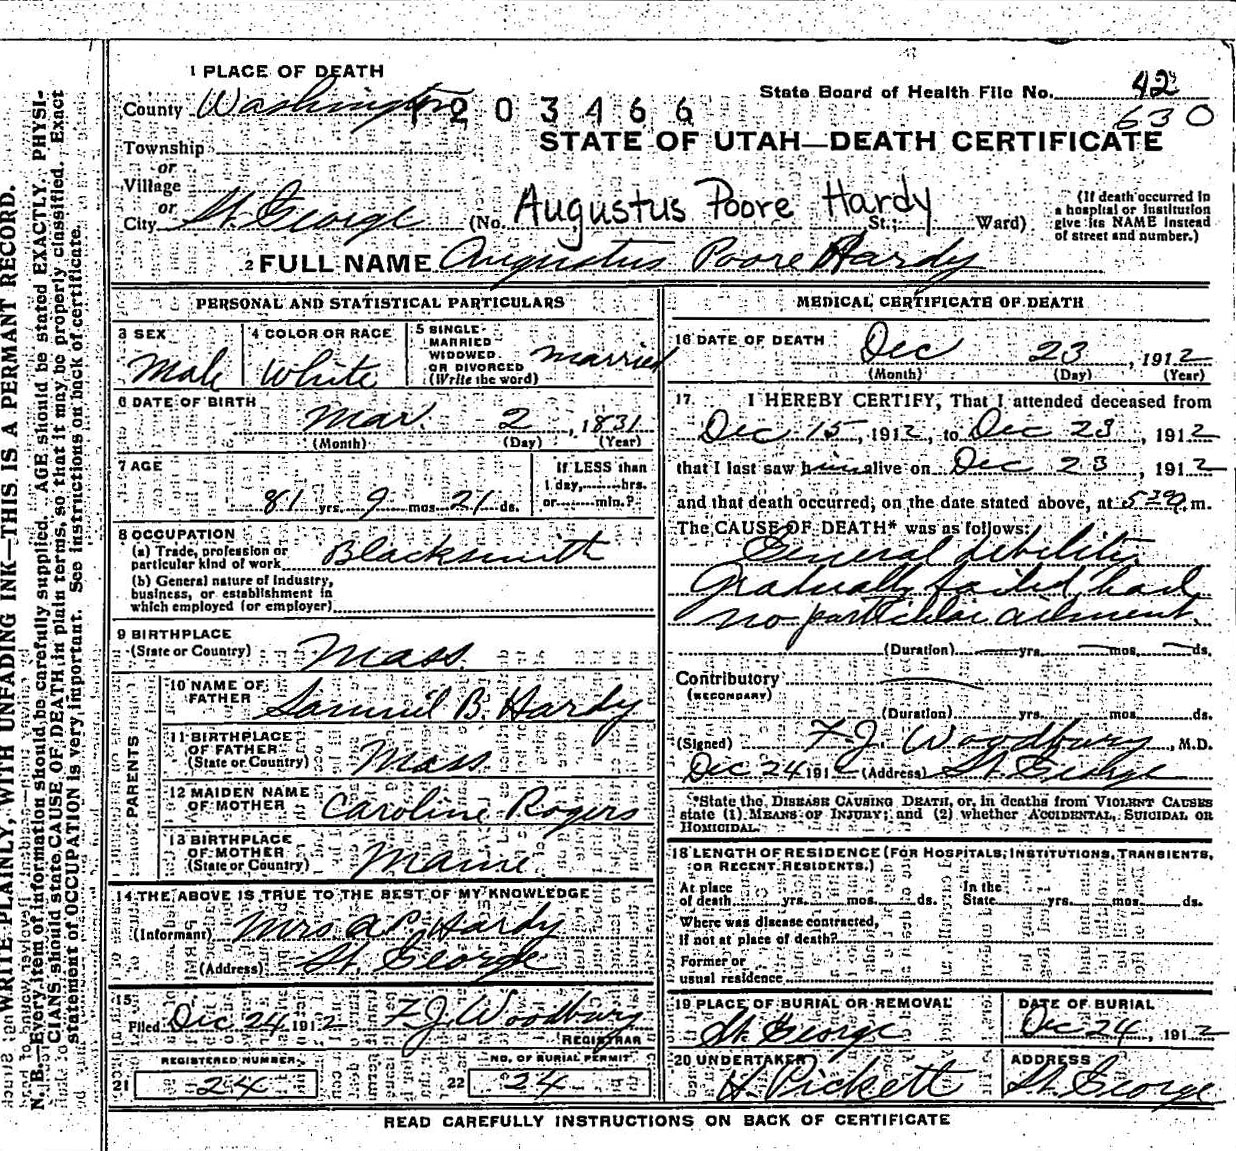 1 PLACE OF DEATH
County Washington
1203466
State Board of Health File No. 42
630
STATE OF UTAH—DEATH CERTIFICATE
Township
or
Village
or
City St. George (No. Augustus Poore Hardy St.; Ward)
(If death occurred in
a hospital or institution
give its NAME instead
of street and number.)
2 FULL NAME Augustus Poore Hardy
PERSONAL AND STATISTICAL PARTICULARS
3 SEX
Male
4 COLOR OR RACE
White
5 SINGLE
MARRIED
WIDOWED
OR DIVORCED
(Write the word)
married
6 DATE OF BIRTH
Mar. 2, 1831
(Month) (Day) (Year)
7 AGE
81 yrs. 9 mos. 21 ds.
If LESS than
1 day, hrs.
or min.?
8 OCCUPATION
(a) Trade, profession or
particular kind of work Blacksmith
(b) General nature of Industry,
business, or establishment in
which employed (or employer)
9 BIRTHPLACE
(State or Country) Mass.
PARENTS
10 NAME OF
FATHER Samuil B. Hardy
11 BIRTHPLACE
OF FATHER
(State or Country) Mass.
12 MAIDEN NAME
OF MOTHER Caroline Rogers
13 BIRTHPLACE
OF MOTHER
(State or Country) Maine
14 THE ABOVE IS TRUE TO THE BEST OF MY KNOWLEDGE
(Informant) Mrs A P Hardy
(Address) St. George
15
Filed Dec 24 1912 F. J. Woodbury
REGISTRAR
REGISTERED NUMBER
21 24
NO. OF BURIAL PERMIT
22 24
MEDICAL CERTIFICATE OF DEATH
16 DATE OF DEATH
Dec 23, 1912
(Month) (Day) (Year)
17 I HEREBY CERTIFY, That I attended deceased from
Dec 15, 1912, to Dec 23, 1912
that I last saw him alive on Dec 23, 1912
and that death occurred, on the date stated above, at 5 30 a m.
The CAUSE OF DEATH* was as follows:
General debility.
Gradually failed, had
no particular ailment.
(Duration) yrs. mos. ds.
Contributory
(SECONDARY)
(Duration) yrs. mos. ds.
(Signed) F. J. Woodbury, M.D.
Dec 24 1912 (Address) St. George
*State the DISEASE CAUSING DEATH, or, in deaths from VIOLENT CAUSES
state (1) MEANS OF INJURY; and (2) whether ACCIDENTAL, SUICIDAL OR
HOMICIDAL.
18 LENGTH OF RESIDENCE (FOR HOSPITALS, INSTITUTIONS, TRANSIENTS,
OR RECENT RESIDENTS.)
At place
of death yrs. mos. ds.
In the
State yrs. mos. ds.
Where was disease contracted,
If not at place of death?
Former or
usual residence
19 PLACE OF BURIAL OR REMOVAL
St. George
DATE OF BURIAL
Dec 24, 1912
20 UNDERTAKER
H. Pickett
ADDRESS
St. George
READ CAREFULLY INSTRUCTIONS ON BACK OF CERTIFICATE
WRITE PLAINLY, WITH UNFADING INK—THIS IS A PERMANT RECORD.
N. B.—Every item of information should be carefully supplied. AGE should be stated EXACTLY. PHYSI-
CIANS should state CAUSE OF DEATH in plain terms, so that it may be properly classified. Exact
statement of OCCUPATION is very important. See instructions on back of certificate.